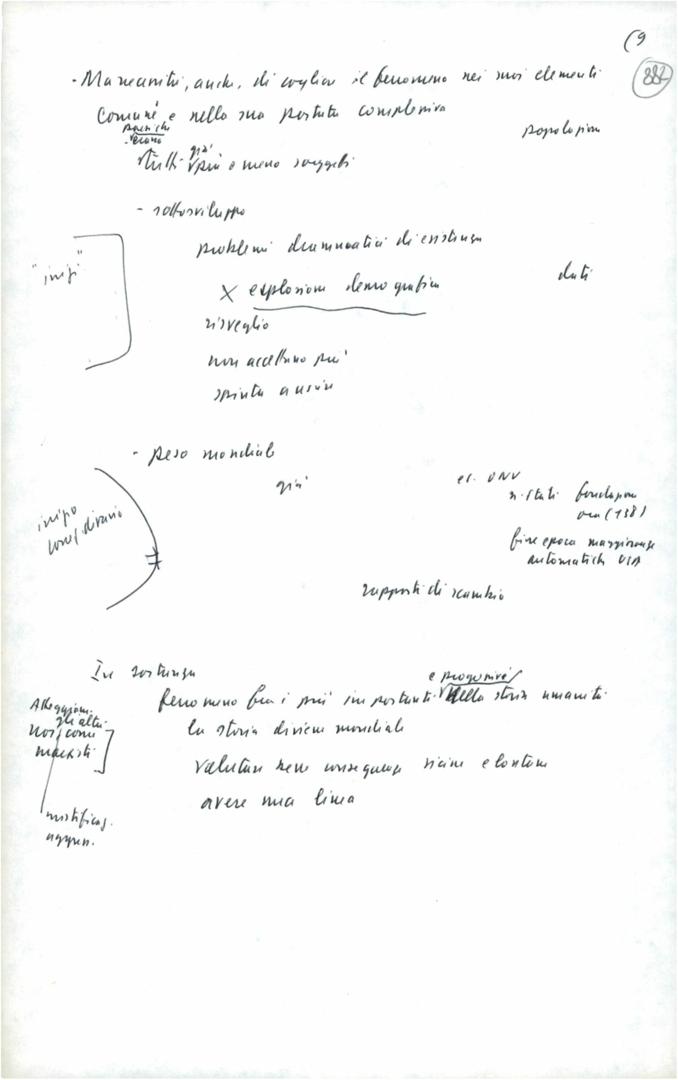 (9
882
- Mancanti, anche, di cogliere il fenomeno nei suoi elementi
comuni e nella sua portata complessiva
popolazioni
più e meno soggetti
- sottosviluppo
problemi drammatici di esistenza
dati
X esplosione demografica
risveglio
non accettano più
spinta a uscire
- peso mondiale
già
es. ONU
n. stati fondazione
ora (138)
fine epoca maggioranze
automatiche USA
rapporti di scambio
In sostanza
e progressivi
fenomeno fra i più importanti nella storia umanità
la storia diviene mondiale
valutare bene conseguenze vicine e lontane
avere una linea
Atteggiam.
gli altri
noi come
marxisti
mistificaz.